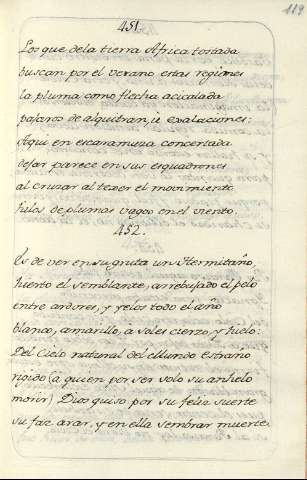 119
451.
Los que de la tierra Africa tostada
buscan por el verano estas regiones
la pluma como flecha acicalada
pajaros de alquitran, ù exalaciones:
Aqui en escaramuza concertada
dejar parece en sus esquadrones
al cruzar al texer el movimiento
hilos de plumas vagos en el viento.
452.
Es de ver en su gruta un Hermitaño,
yerto el semblante, arrebujado el pelo
entre ardores, y yelos todo el año
blanco, amarillo, à soles cierzo, y hielo:
Del Cielo natural del Mundo estraño
rigido (a quien por ser solo su anhelo
morir) Dios quiso por su feliz suerte
su faz arar, y en ella sembrar muerte